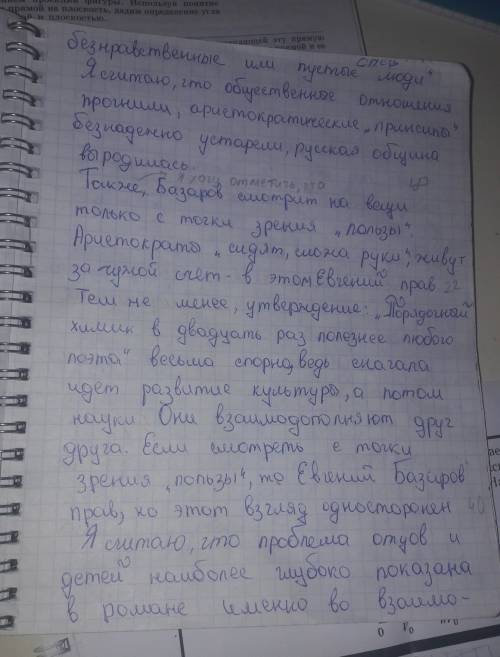 прямой на плоскость, дадим определение угла
и плоскостью.
безнравственные или пустые люди"
Я считаю, что общественные отношения
прогнили, аристократические „принсипы"
безнадежно устарели, русская община
выродилась.
Я хочу отметить, что
Также, Базаров смотрит на вещи
только с точки зрения „пользы".
Аристократы „сидят, сложа руки", живут
за чужой счет - в этом Евгений прав.
Тем не менее, утверждение: „Порядочный
химик в двадцать раз полезнее любого
поэта" весьма спорно, ведь сначала
идет развитие культуры, а потом
науки. Они взаимодополняют друг
друга. Если смотреть с точки
зрения „пользы", то Евгений Базаров
прав, но этот взгляд односторонен 40
Я считаю, что проблема отцов и
детей наиболее глубоко показана
в романе именно во взаимо-